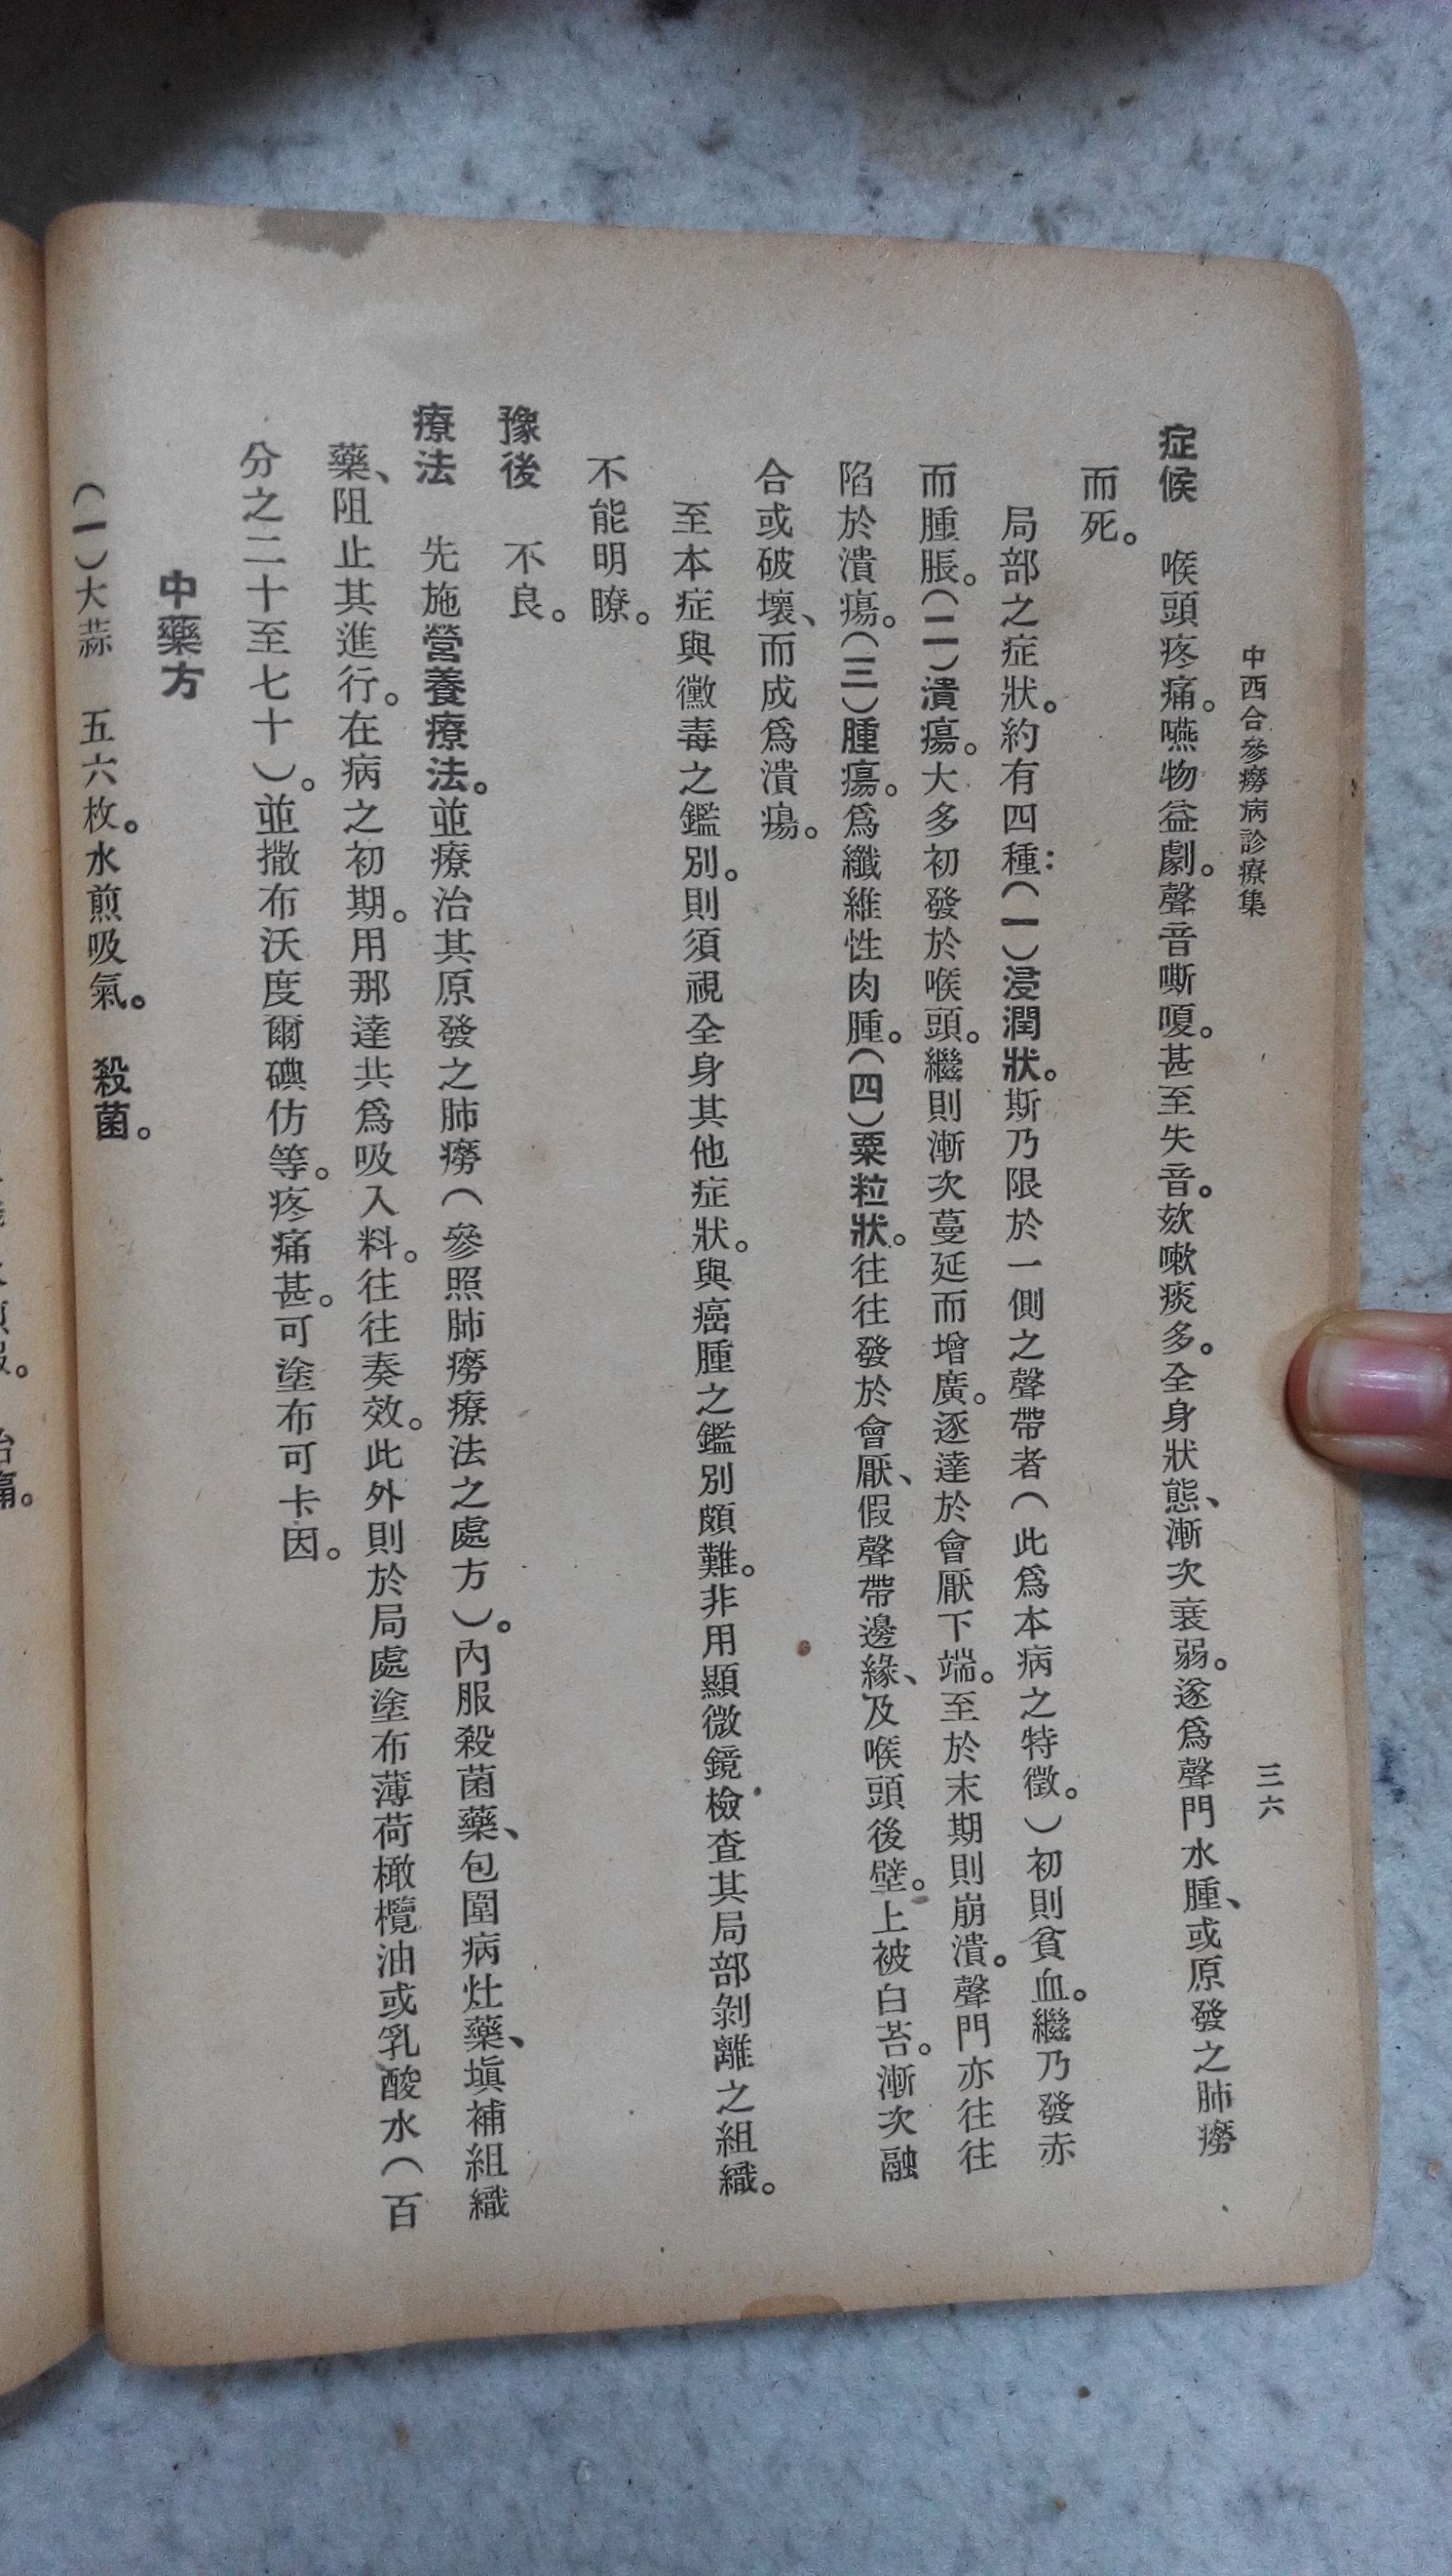 中西合參癆病診療集
三六
症候　喉頭疼痛。嚥物益劇。聲音嘶嗄。甚至失音。欬嗽痰多。全身狀態、漸次衰弱。遂爲聲門水腫、或原發之肺癆
而死。
局部之症狀。約有四種：（一）浸潤狀。斯乃限於一側之聲帶者（此爲本病之特徵。）初則貧血。繼乃發赤
而腫脹。（二）潰瘍。大多初發於喉頭。繼則漸次蔓延而增廣。逐達於會厭下端。至於末期則崩潰。聲門亦往往
陷於潰瘍。（三）腫瘍。爲纖維性肉腫。（四）粟粒狀。往往發於會厭、假聲帶邊緣、及喉頭後壁。上被白苔。漸次融
合或破壞、而成爲潰瘍。
至本症與黴毒之鑑別。則須視全身其他症狀。與癌腫之鑑別頗難。非用顯微鏡檢查其局部剝離之組織。
不能明瞭。
豫後　不良。
療法　先施營養療法。並療治其原發之肺癆（參照肺癆療法之處方）。內服殺菌藥、包圍病灶藥、塡補組織
藥、阻止其進行。在病之初期。用那達共爲吸入料。往往奏效。此外則於局處塗布薄荷橄欖油或乳酸水（百
分之二十至七十）。並撒布沃度爾碘仿等。疼痛甚。可塗布可卡因。
中藥方
（一）大蒜　五六枚。水煎吸氣。　殺菌。